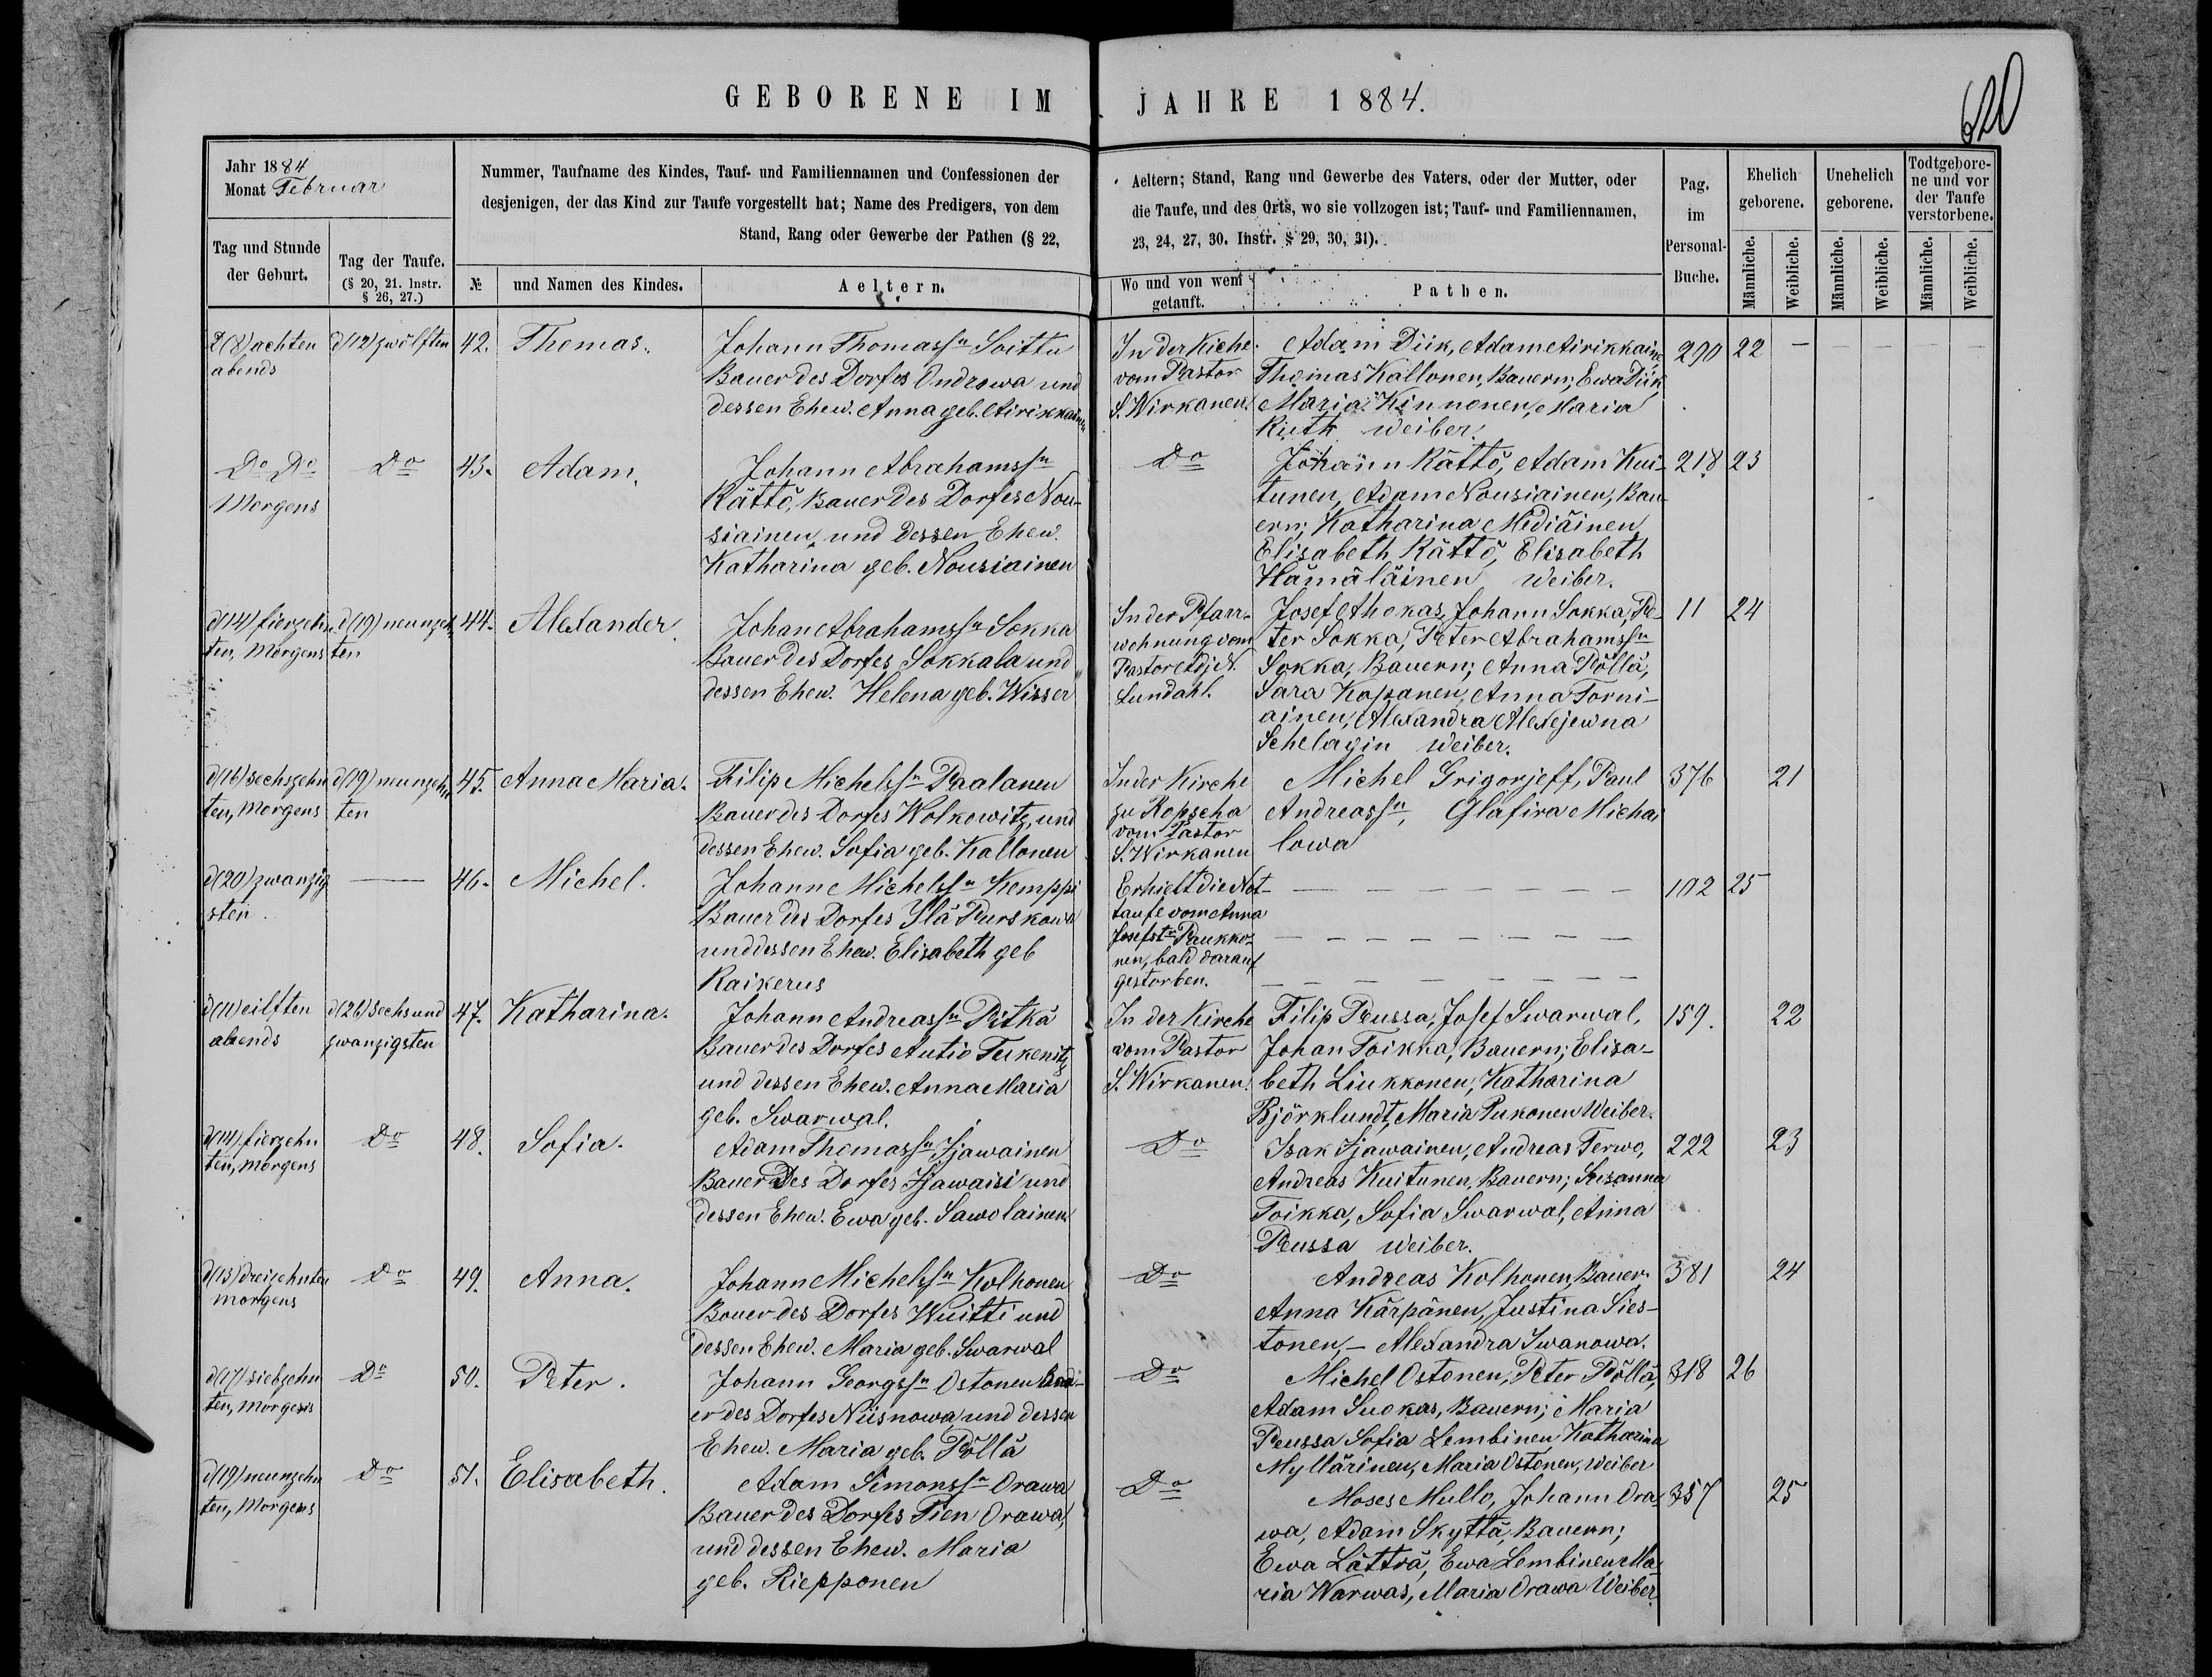 GEBORENE IM JAHRE 1884.
620
Jahr 1884
Monat Februar
Nummer, Taufname des Kindes, Tauf- und Familiennamen und Confessionen der
desjenigen, der das Kind zur Taufe vorgestellt hat; Name des Predigers, von dem
Stand, Rang oder Gewerbe der Pathen (§ 22,
Aeltern; Stand, Rang und Gewerbe des Vaters, oder der Mutter, oder
die Taufe, und des Orts, wo sie vollzogen ist; Tauf- und Familiennamen,
23, 24, 27, 30. Instr. § 29, 30, 31).
Tag und Stunde
der Geburt.
Tag der Taufe.
(§ 20, 21. Instr.
§ 26, 27.)
№
und Namen des Kindes.
Aeltern.
Wo und von wem
getauft.
Pathen.
Pag.
im
Personal-
Buche.
Ehelich
geborene.
Unehelich
geborene.
Todtgebore-
ne und vor
der Taufe
verstorbene.
Männliche.
Weibliche.
Männliche.
Weibliche.
Männliche.
Weibliche.
d(8) achten
abends
d(12) zwölften
42.
Thomas.
Johann Thomassn Soittu
Bauer des Dorfes Ondrowa und
dessen Ehew. Anna geb. Airikkainen
In der Kiche
vom Pastor
S. Wirkanen.
Adam Diik, Adam Airikkain,
Thomas Kallonen, Bauern; Ewa Diik,
Maria Kinnonen, Maria
Kiuth weiber.
290
22 — — — — —
Do Do
Morgens
Do
43.
Adam.
Johann Abrahamssn
Rättö, Bauer des Dorfes Nou-
siainen, und dessen Ehew.
Katharina geb. Nousiainen
Do
Johann Rättö, Adam Kui-
tunen, Adam Nousiainen, Bau-
ern; Katharina Mediäinen
Elisabeth Rättö, Elisabeth
Hämäläinen weiber.
218
23
d(14) fierzehn
ten, Morgens
d(19) neunzehn
ten
44.
Alexander.
Johan Abrahamssn Sokka
Bauer des Dorfes Sokkala und
dessen Ehew. Helena geb. Wisser
In der Pfarr-
wohnung vom
Pastor Adj. A.
Lundahl.
Josef Ahokas, Johann Sokka, Pe-
ter Sokka, Peter Abrahamssn
Sokka, Bauern; Anna Pöllä,
Sara Kapanen, Anna Torni-
ainen, Alexandra Alexejewna
Schelagin weiber.
11
24
d(16) sechszehn
ten, Morgens
d(19) neunzehn
ten
45.
Anna Maria.
Filip Michelssn Paalanen
Bauer des Dorfes Wolkowitz, und
dessen Ehew. Sofia geb. Kallonen
In der Kirche
zu Ropscha
vom Pastor
S. Wirkanen
Michel Grigorjeff, Paul
Andreassn, Glafira Michai
lowa
376
21
d(20) zwanzig
sten
—
46.
Michel.
Johann Michelssn Kemppi
Bauer des Dorfes Ylä Purskowa
und dessen Ehew. Elisabeth geb
Raikerus
Erhielt die Not-
taufe vom Anna
Josefstr Paukko-
nen, bald darauf
gestorben.
102
25
d(11) eilften
abends
d(26) sechsund
zwanzigsten
47.
Katharina.
Johann Andreassn Pitkä
Bauer des Dorfes Autio Tukenitz
und dessen Ehew. Anna Maria
geb. Swarwal.
In der Kirche
vom Pastor
S. Wirkanen.
Filip Reussa, Josef Swarwal,
Johan Toikka, Bauern; Elisa-
beth Liukkonen, Katharina
Björklundt, Maria Pukonen Weiber.
159.
22
d(14) fierzehn
ten, morgens
Do
48.
Sofia.
Adam Thomassn Jjawainen
Bauer Des Dorfes Jjawaisi und
dessen Ehew. Ewa geb. Sawolainen
Do
Isak Jjawainen, Andreas Terwo,
Andreas Kuitunen, Bauern; Susanna
Toikka, Sofia Swarwal, Anna
Reussa weiber.
222
23
d(13) dreizehnten
morgens
Do
49.
Anna.
Johann Michelssn Kolhonen
Bauer des Dorfes Wuitti und
dessen Ehew. Maria geb. Swarwal
Do
Andreas Kolhonen, Bauer
Anna Kärpänen, Justina Sies-
tonen, — Alexandra Iwanowa.
381
24
d(17) siebzehn
ten, Morgens
Do
50.
Peter.
Johann Georgssn Ostonen Bau-
er des Dorfes Niisnowa und dessen
Ehew. Maria geb. Pöllä
Do
Michel Ostonen, Peter Pöllä,
Adam Suokas, Bauern; Maria
Reussa Sofia Lembinen Katharina
Myllärinen, Maria Ostonen, weiber
318
26
d(19) neunzehn
ten, Morgens
Do
51.
Elisabeth.
Adam Simonssn Orawa
Bauer des Dorfes Pien Orawa,
und dessen Ehew. Maria
geb. Riepponen
Do
Moses Mullo, Johann Ora
wa, Adam Skyttä, Bauern;
Ewa Lätträ, Ewa Lembinen Ma
ria Warwas, Maria Orawa Weiber.
357
25